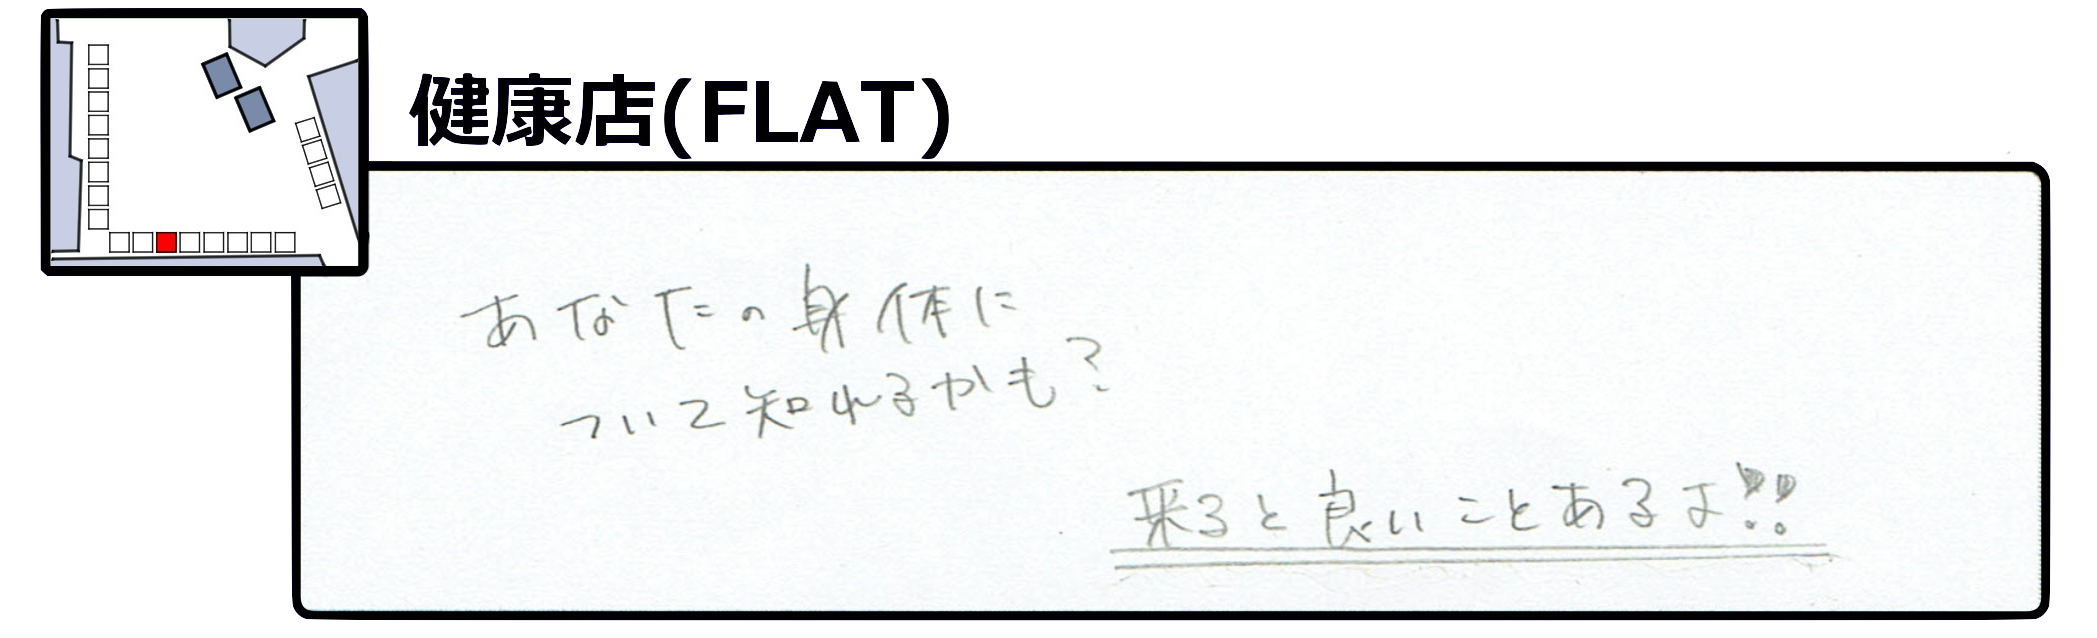 健康店(FLAT)
あなたの身体に
ついて知れるかも?
来ると良いことあるよ!!